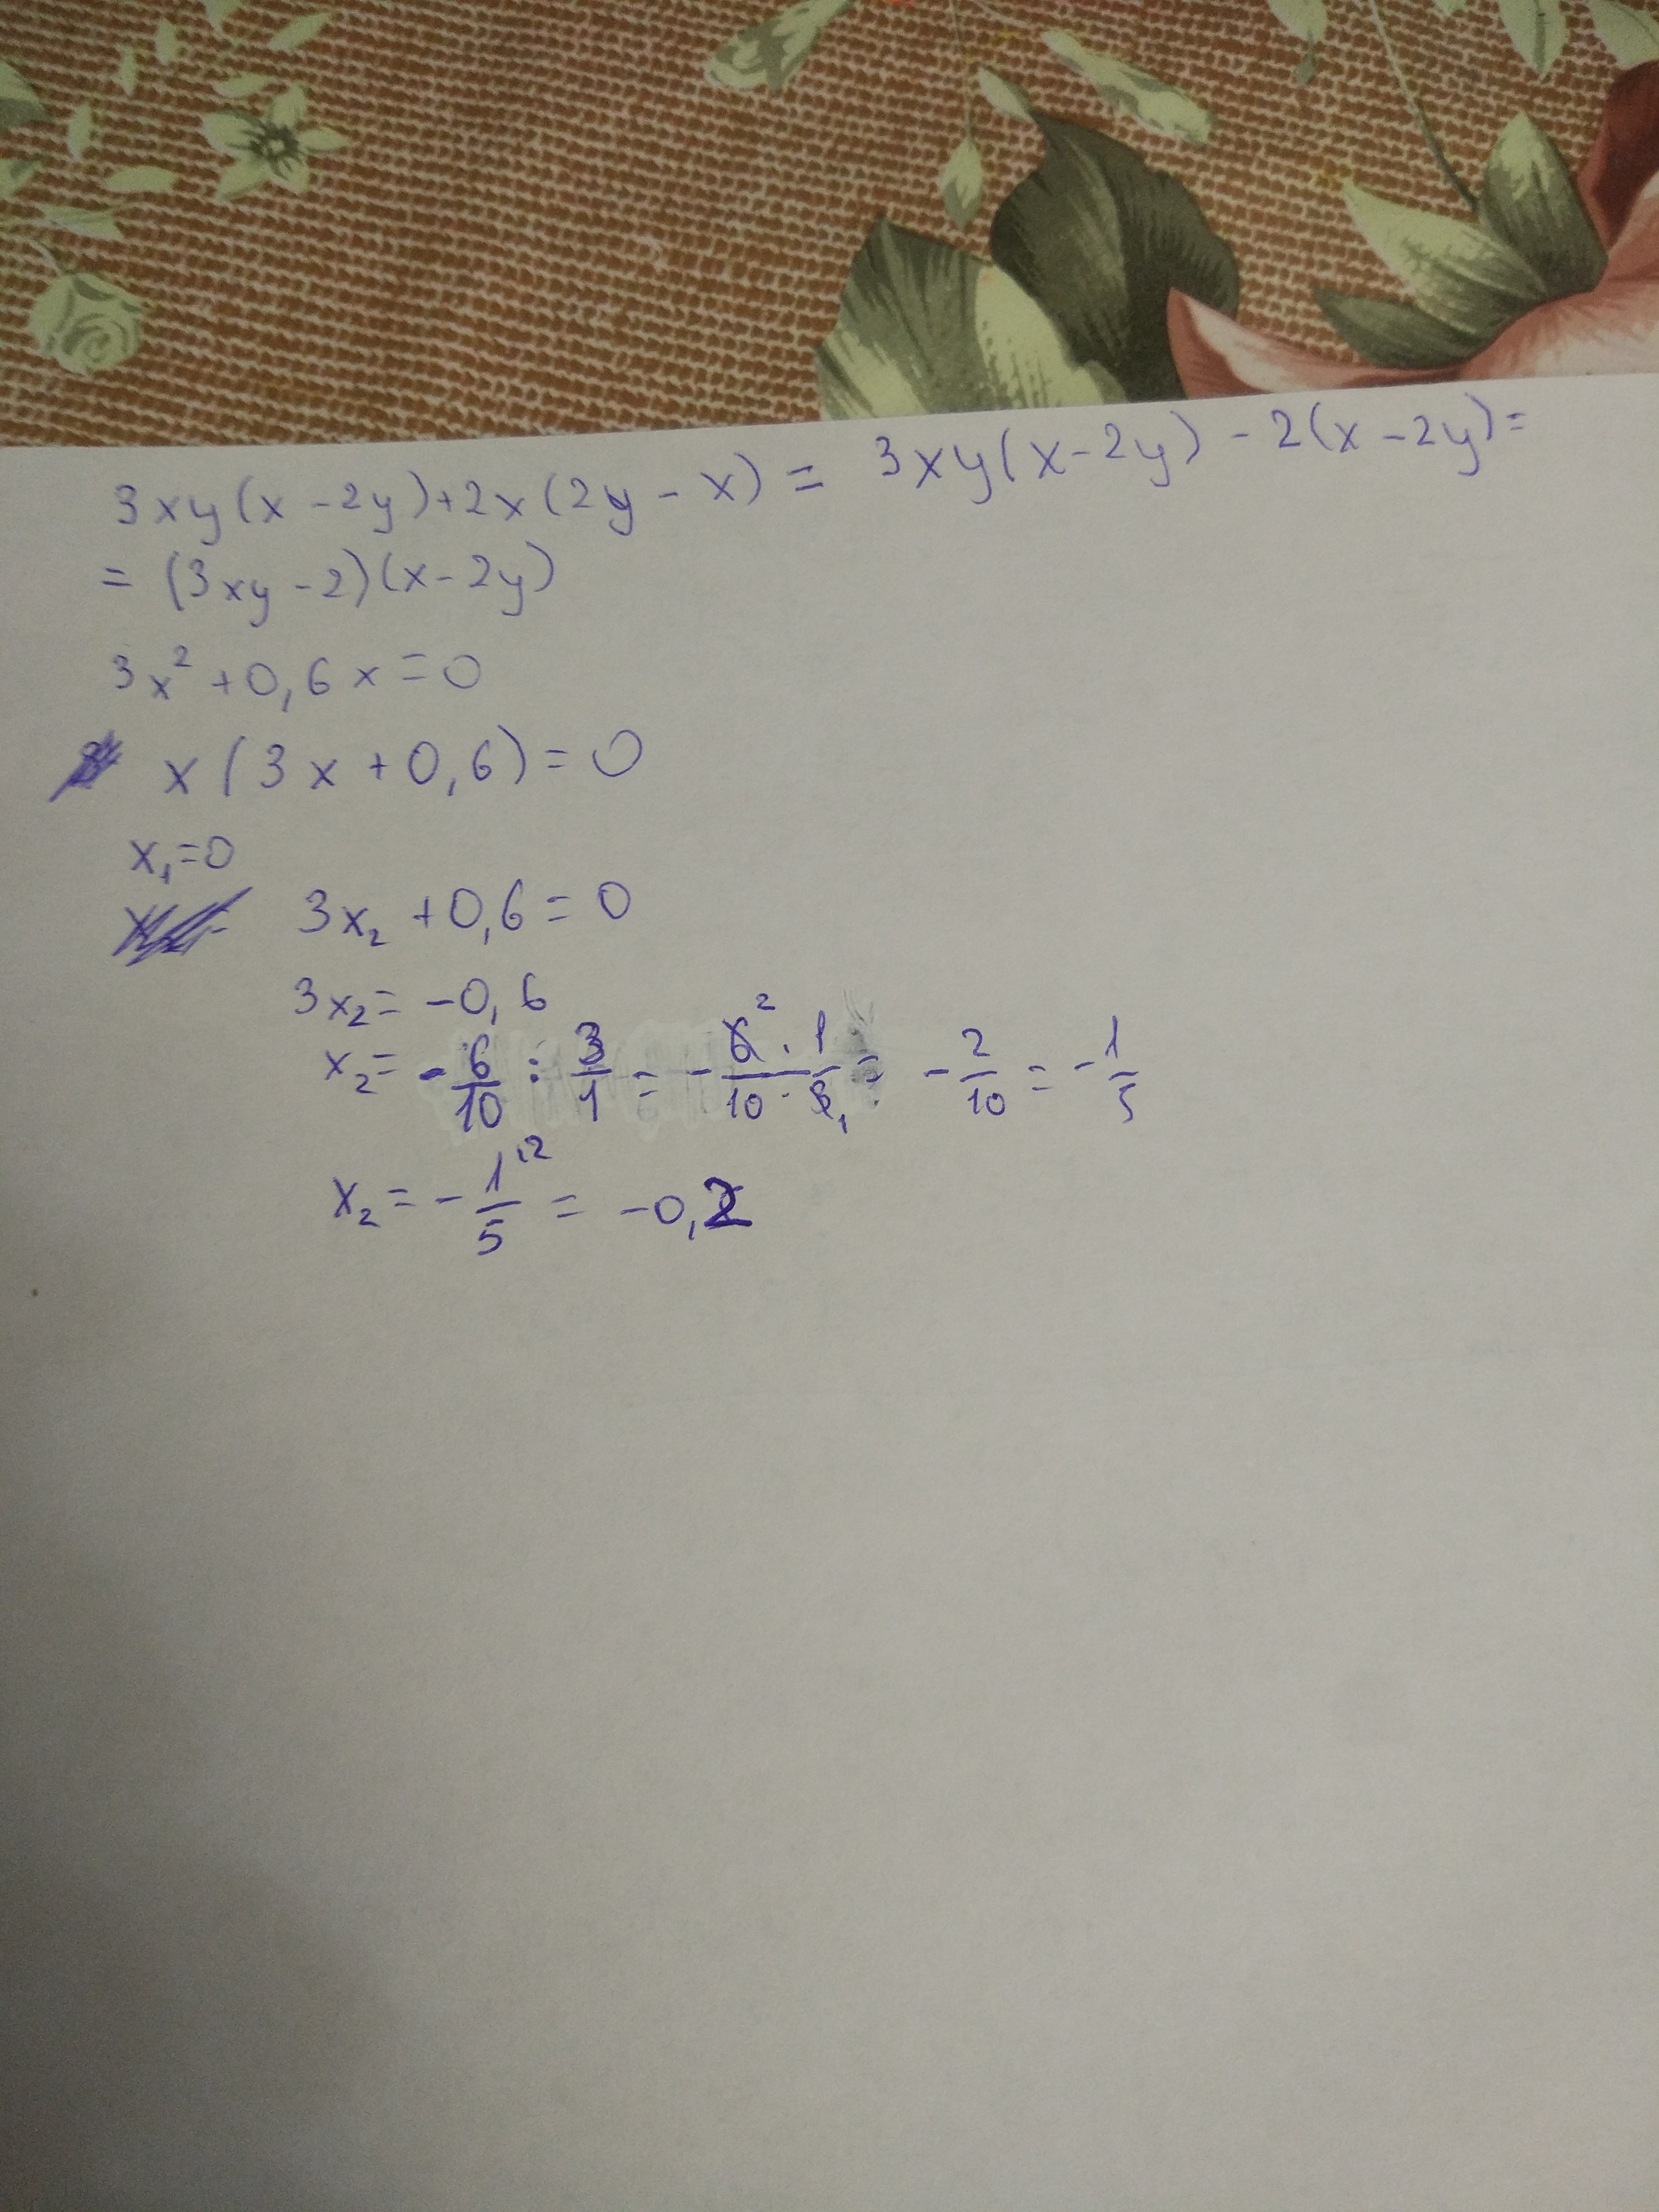 3xy(x-2y)+2x(2y-x) = 3xy(x-2y)-2(x-2y)=
= (3xy-2)(x-2y)
3x²+0,6x=0
x(3x+0,6)=0
x₁=0
3x₂+0,6=0
3x₂=-0,6
x₂= -6/10 : 3/1 = -6² · 1/10 · 3₁ = -2/10 = -1/5
x₂ = -1·²/5 = -0,2